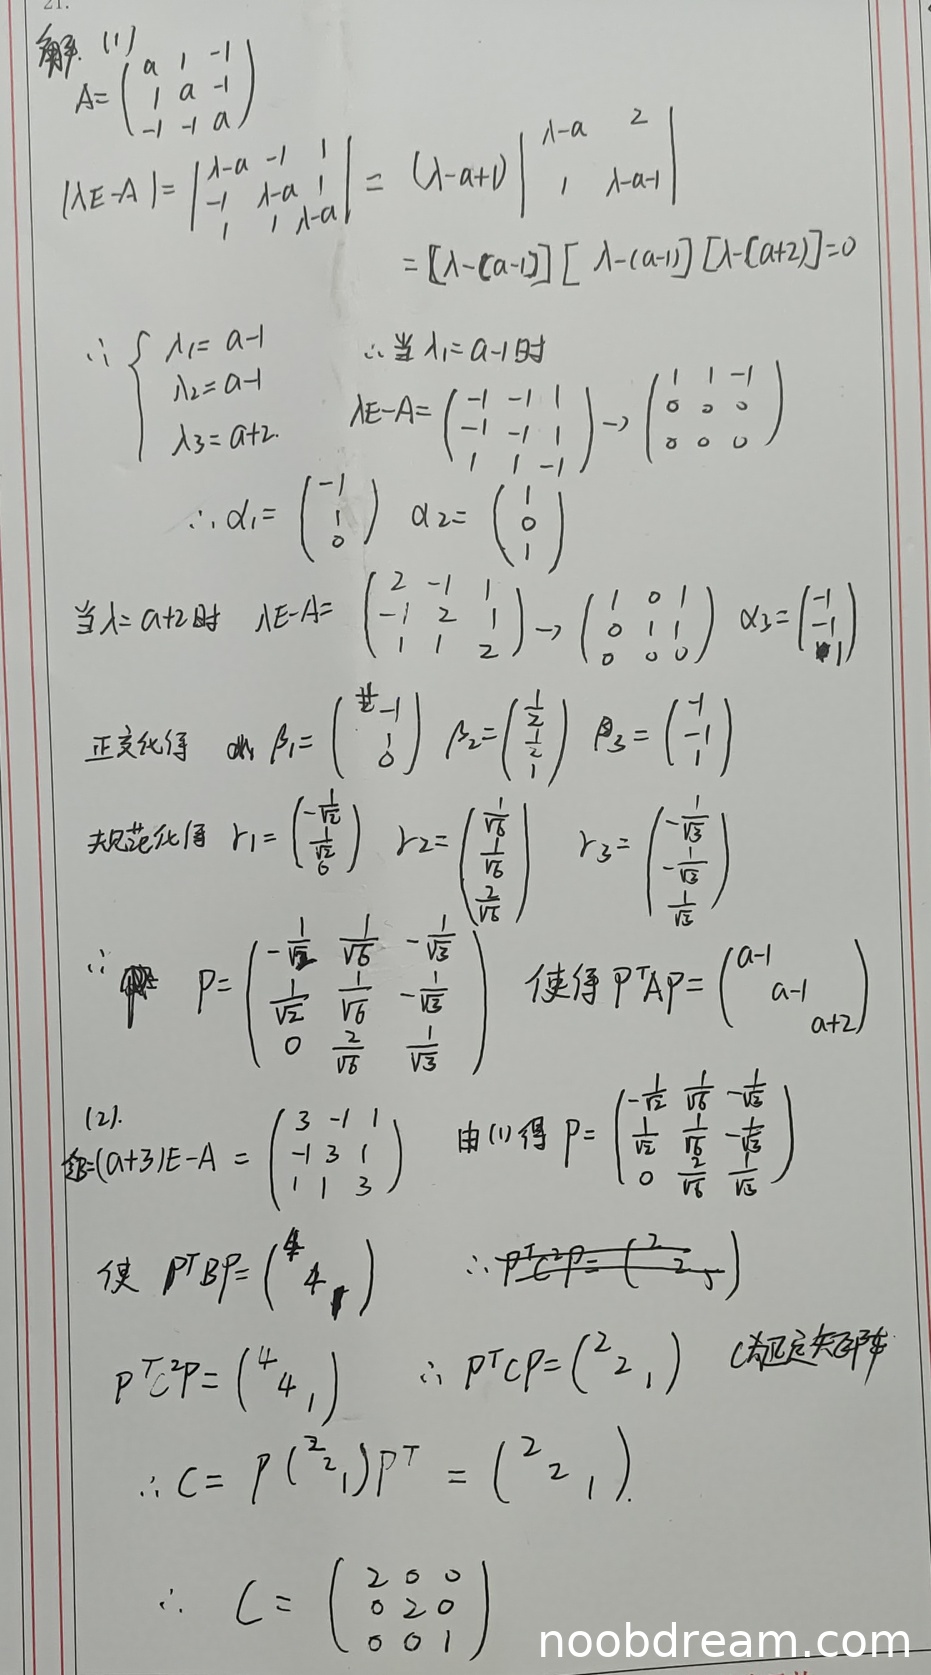 21.
解 (1)
A = ( a 1 -1 ; 1 a -1 ; -1 -1 a )
|λE-A| = | λ-a -1 1 ; -1 λ-a 1 ; 1 1 λ-a | = (λ-a+1) | λ-a 2 ; 1 λ-a-1 |
= [λ-(a-1)] [λ-(a-1)] [λ-(a+2)] = 0
∴ { λ1 = a-1 ; λ2 = a-1 ; λ3 = a+2. ∴当 λ1 = a-1 时
λE-A = ( -1 -1 1 ; -1 -1 1 ; 1 1 -1 ) → ( 1 1 -1 ; 0 0 0 ; 0 0 0 )
∴ α1 = ( -1 ; 1 ; 0 ) α2 = ( 1 ; 0 ; 1 )
当 λ = a+2 时 λE-A = ( 2 -1 1 ; -1 2 1 ; 1 1 2 ) → ( 1 0 1 ; 0 1 1 ; 0 0 0 ) α3 = ( -1 ; -1 ; 1 )
正交化得 β1 = ( -1 ; 1 ; 0 ) β2 = ( 1/2 ; 1/2 ; 1 ) β3 = ( -1 ; -1 ; 1 )
规范化得 r1 = ( -1/√2 ; 1/√2 ; 0 ) r2 = ( 1/√6 ; 1/√6 ; 2/√6 ) r3 = ( -1/√3 ; -1/√3 ; 1/√3 )
∴ P = ( -1/√2 1/√6 -1/√3 ; 1/√2 1/√6 -1/√3 ; 0 2/√6 1/√3 ) 使得 PᵀAP = ( a-1 ; a-1 ; a+2 )
(2).
B=(a+3)E-A = ( 3 -1 1 ; -1 3 1 ; 1 1 3 ) 由(1)得 P = ( -1/√2 1/√6 -1/√3 ; 1/√2 1/√6 -1/√3 ; 0 2/√6 1/√3 )
使 PᵀBP = ( 4 4 1 ) ∴ PᵀC²P = ( 2 2 )
PᵀC²P = ( 4 4 1 ) ∴ PᵀCP = ( 2 2 1 ) C为正定矩阵
∴ C = P ( 2 2 1 ) Pᵀ = ( 2 2 1 ).
∴ C = ( 2 0 0 ; 0 2 0 ; 0 0 1 )
noobdream.com